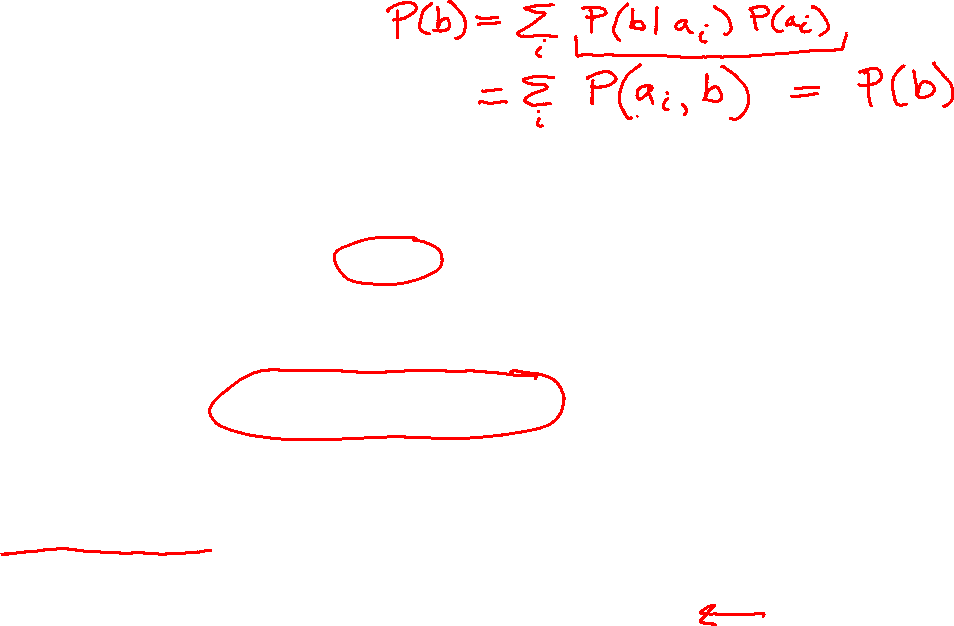 P(b) = Σ_i P(b|a_i) P(a_i)
= Σ_i P(a_i, b) = P(b)